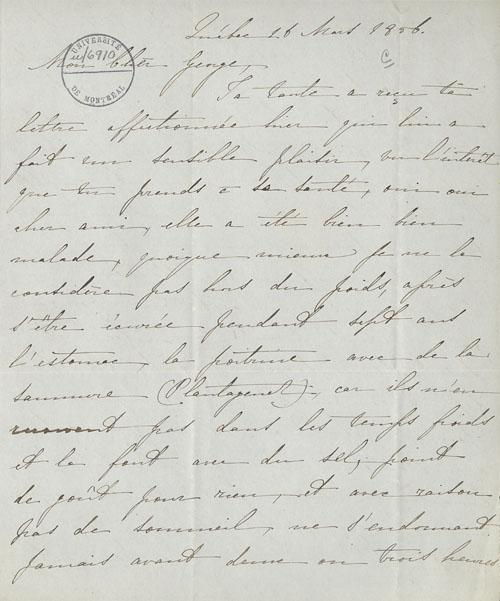 Québec 26 Mars 1856.
UNIVERSITÉ
u/6910
DE MONTRÉAL
Mon cher George,
Ta tante a reçu ta
lettre affectionnée hier qui lui a
fait un sensible plaisir, vu l'intérêt
que tu prends a sa santé, oui oui
cher ami, elle a été bien bien
malade, quoique mieux je ne la
considère pas hors du poids, après
s'être écurée pendant sept ans
l'estomac, la poitrine avec de la
saumure (Plantagenet), car ils n'en
pas dans les temps froids
et la font avec du sel, point
de goût pour rien, et avec raison
pas de sommeil, ne s'endormant
jamais avant deux ou trois heures